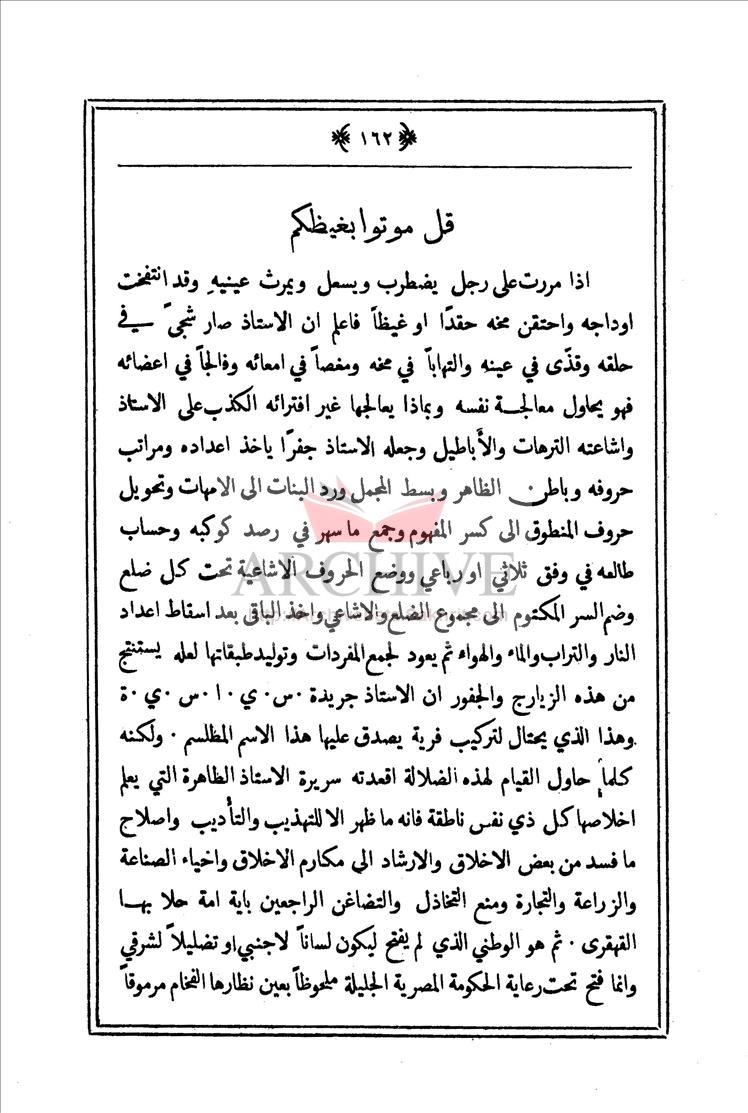 ﴿ ١٦٢ ﴾
قل موتوا بغيظكم
اذا مررت على رجل يضطرب ويسعل ويمرث عينيهِ وقد انتفخت
اوداجه واحتقن مخه حقدًا او غيظاً فاعلم ان الاستاذ صار شجىً في
حلقه وقذًى في عينهِ والتهاباً في مخه ومغصاً في امعائه وفالجاً في اعضائه
فهو يحاول معالجة نفسه وبماذا يعالجها غير افترائه الكذب على الاستاذ
واشاعته الترهات والأباطيل وجعله الاستاذ جفرًا ياخذ اعداده ومراتب
حروفه وباطن الظاهر وبسط المجمل ورد البنات الى الامهات وتحويل
حروف المنطوق الى كسر المفهوم وجمع ما سهر في رصد كوكبه وحساب
طالعه في وفق ثلاثي او رباعي ووضع الحروف الاشاعية تحت كل ضلع
وضم السر المكتوم الى مجموع الضلع والاشاعي واخذ الباقي بعد اسقاط اعداد
النار والتراب والماء والهواء ثم يعود لجمع المفردات وتوليد طبقاتها لعله يستنتج
من هذه الزيارج والجفور ان الاستاذ جريدة ٠س٠ي٠ا٠س٠ي٠ة
وهذا الذي يحتال لتركيب فرية يصدق عليها هذا الاسم المظلسم ٠ ولكنه
كلما حاول القيام لهذه الضلالة اقعدته سريرة الاستاذ الظاهرة التي يعلم
اخلاصها كل ذي نفس ناطقة فانه ما ظهر الا للتهذيب والتأديب واصلاح
ما فسد من بعض الاخلاق والارشاد الى مكارم الاخلاق واحياء الصناعة
والزراعة والتجارة ومنع التخاذل والتضاغن الراجعين باية امة حلا بها
القهقرى ٠ ثم هو الوطني الذي لم يفتح ليكون لساناً لاجنبي او تضليلاً لشرقي
وانما فتح تحت رعاية الحكومة المصرية الجليلة ملحوظاً بعين نظارها الفخام مرموقاً
ARCHIVE